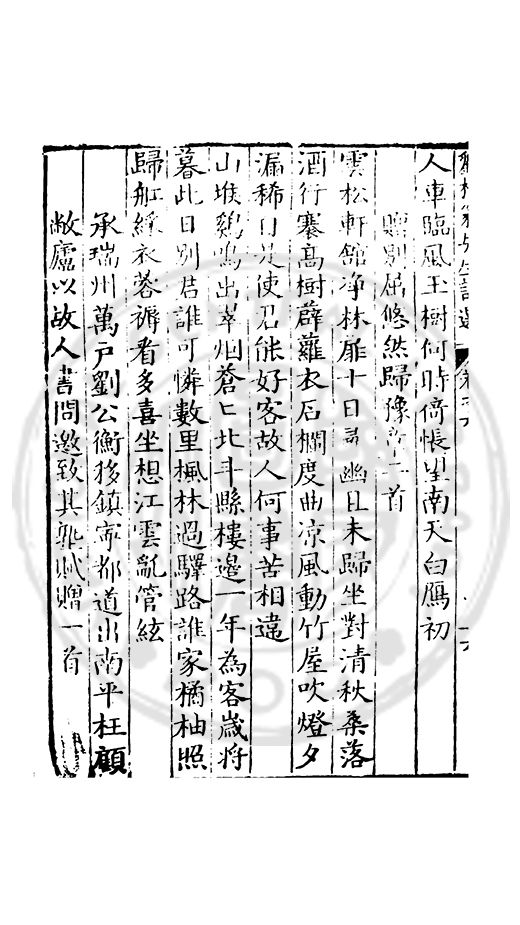 人車臨風玉樹何時倚悵望南天白鴈初
贈別屈悠然歸豫章二首
雲松軒館凈林扉十日尋幽且未歸坐對清秋桑落
酒行褰高樹薜蘿衣石欄度曲凉風動竹屋吹燈夕
漏稀自是使君能好客故人何事苦相違
山堠鷄鳴出萃烟蒼匕北斗縣樓邊一年為客歲將
暮此日別君誰可憐數里楓林過驛路誰家橘柚照
歸舡綵衣蓉褥看多喜坐想江雲亂管絃
承瑞州萬戶劉公衡移鎮寧都道出南平枉顧
敝廬以故人書問邀致其雅賦贈一首